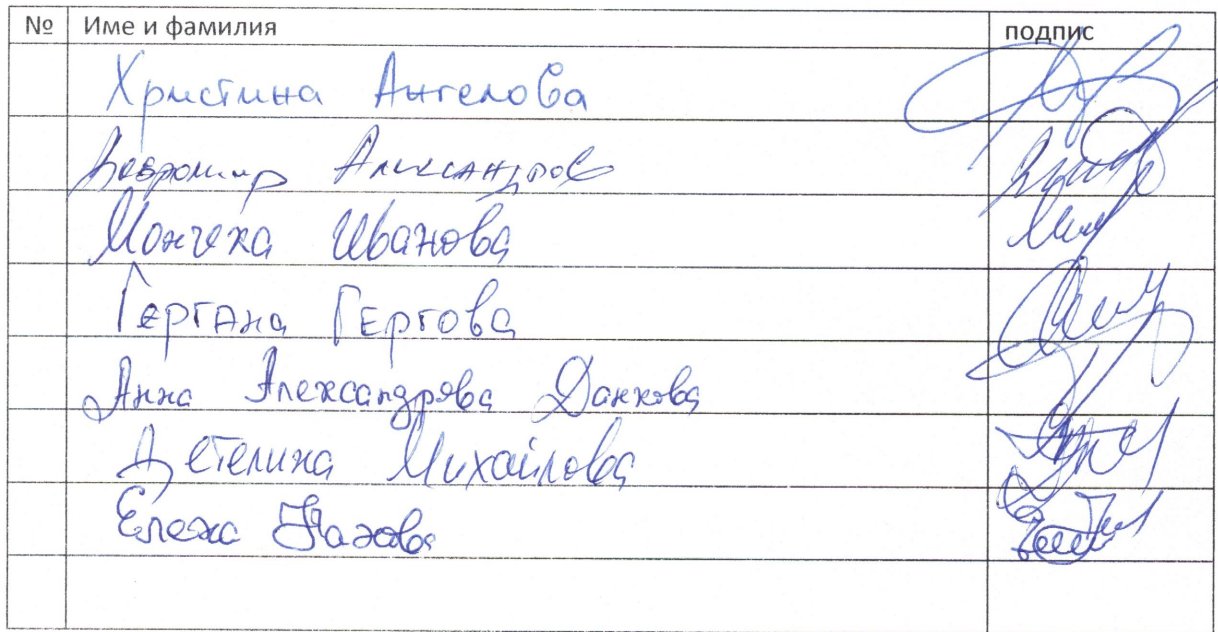 № Име и фамилия подпис
Христина Ангелова
Александров
Моника Иванова
Гергана Гергова
Анна Александрова Данкова
Детелина Михайлова
Елена